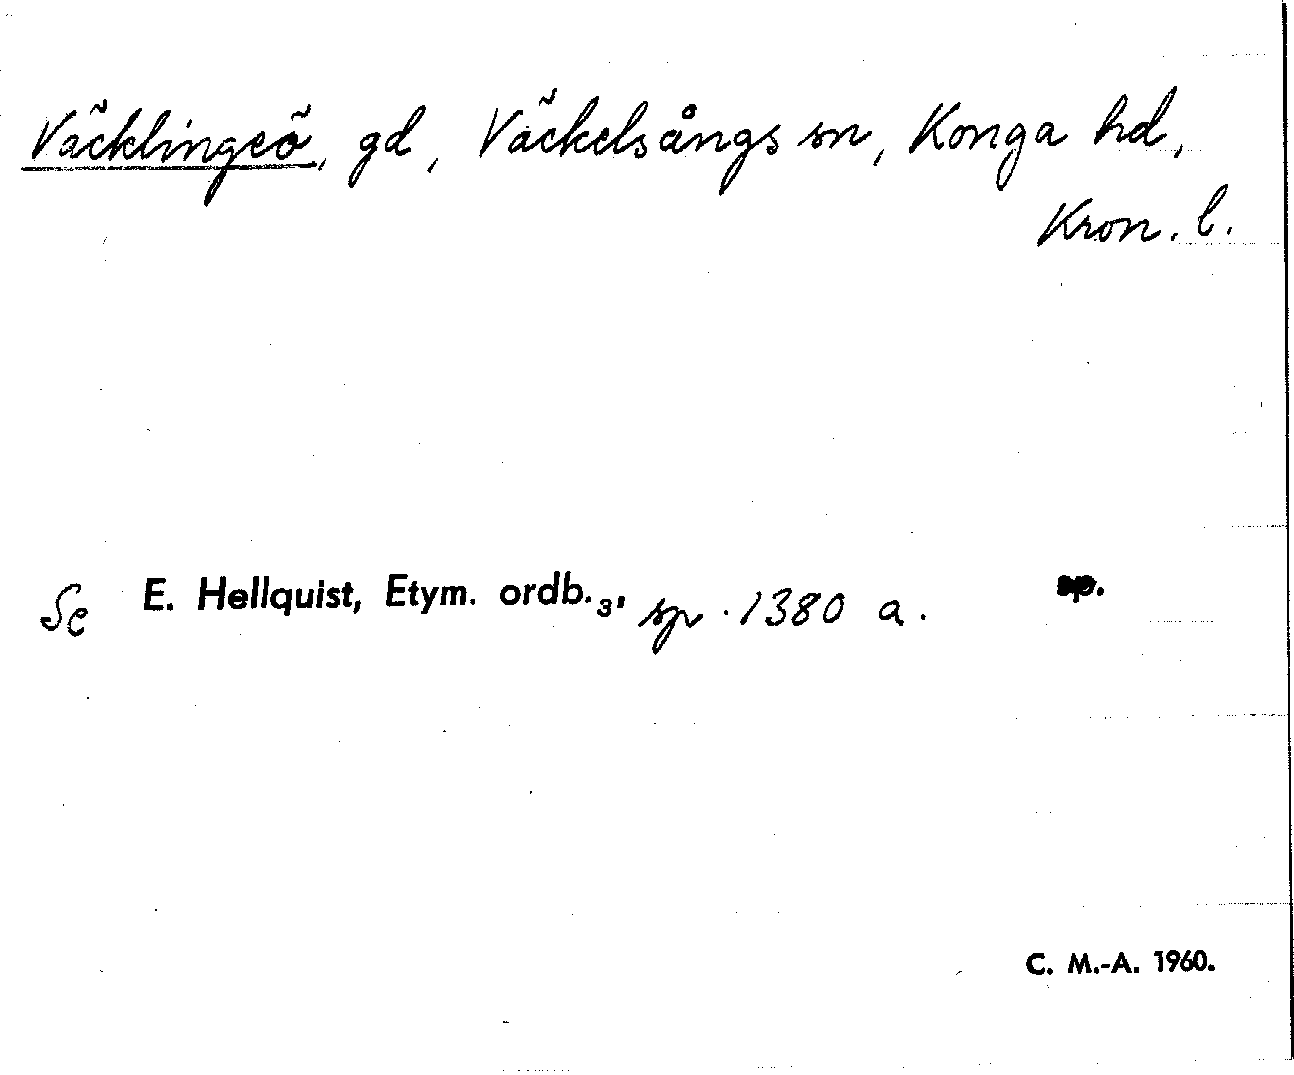 Väcklingeö, gd, Väckelsångs sn, Konga hd,
Kron. l.
Se E. Hellquist, Etym. ordb.3, sp. 1380 a. sp.
C. M.-A. 1960.